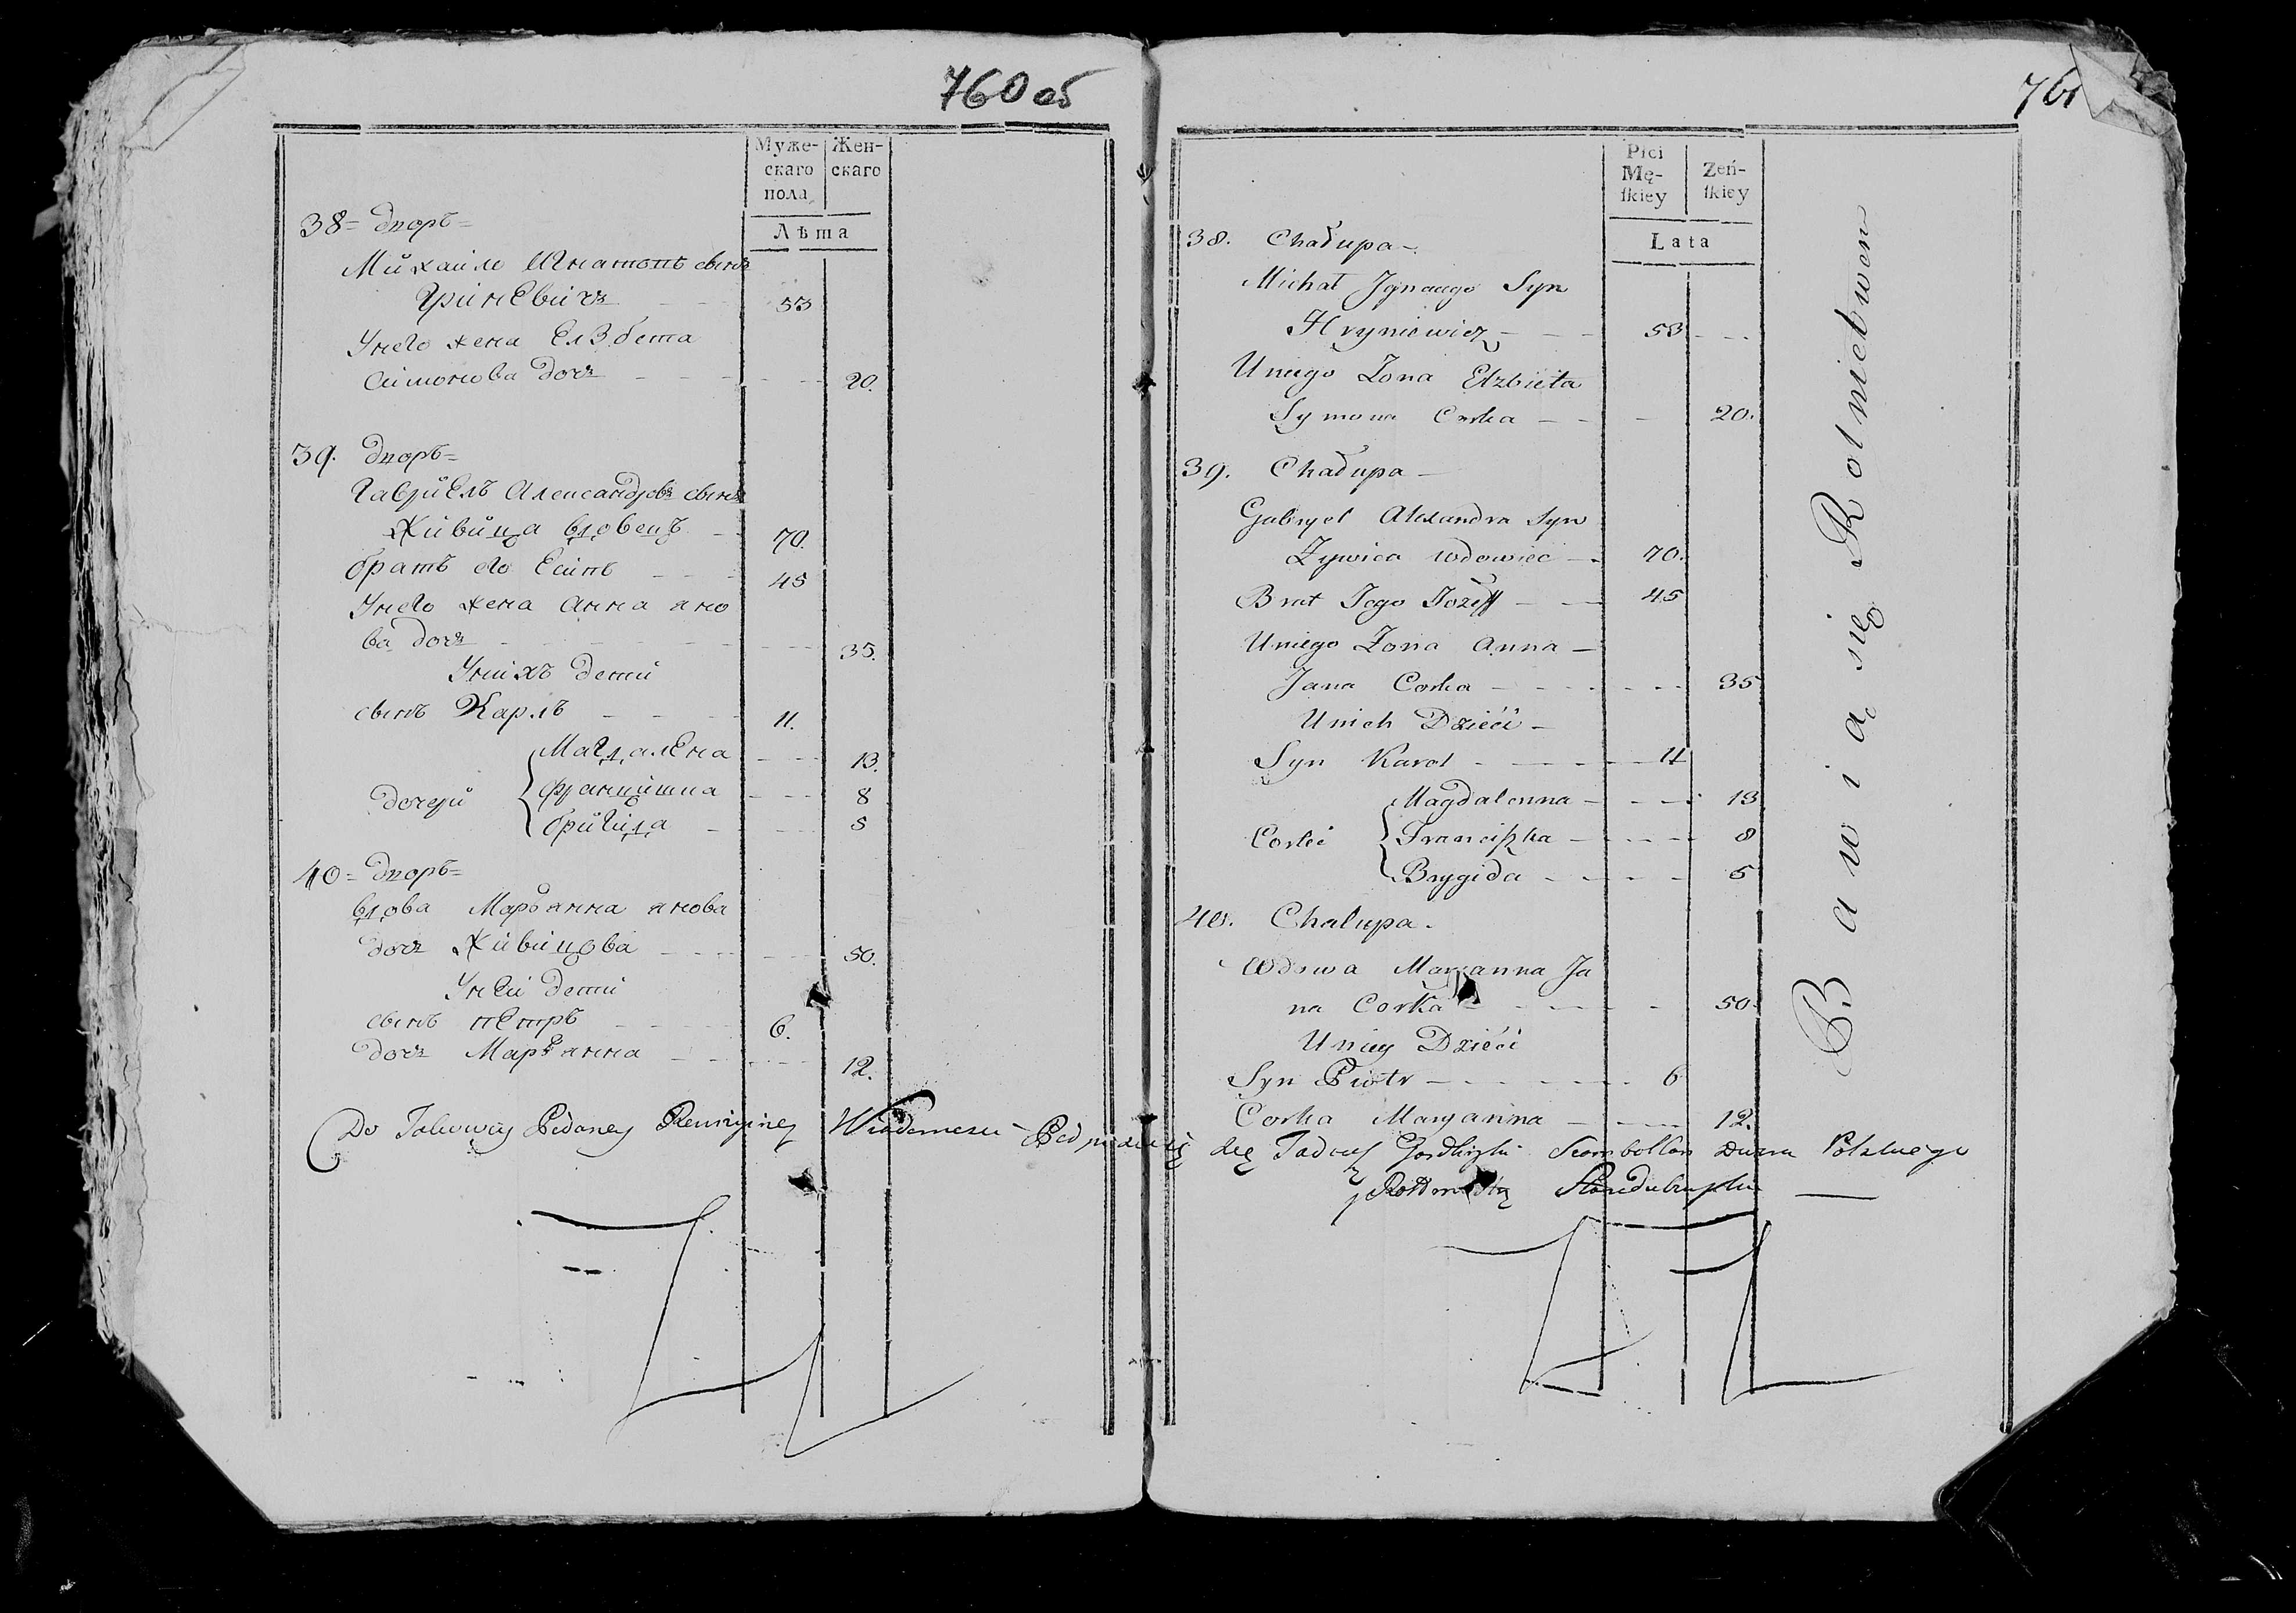 760 об
Муже-
скаго
пола
Жен-
скаго
Лѣта
38= дворъ=
Михайло Игнатовъ сынъ
Гриневичъ 53
У него жена Елзбета
Симонова дочь 20.
39. дворъ=
Гавриелъ Александровъ сынъ
Живица вдовецъ 70.
братъ его Есипъ 45
У него жена Анна яно
ва дочь 35.
У нихъ дети
сынъ Карлъ 11.
Магдалена 13.
дочери Францишка 8
бригида 5
40= дворъ=
вдова Маръянна янова
дочь Живицова 50.
У неи дети
сынъ петръ 6.
дочь Маръянна 12.
761
Płci
Mę-
ſkiey
Żeń-
ſkiey
Lata
38. Chałupa
Michał Jgnacego Syn
Hryniewicz 53
U niego Żona Elzbieta
Symona Corka 20.
39. Chałupa
Gabryel Alexandra Syn
Żywica wdowiec 70.
Brat Jego Jozeff 45
U niego Żona Anna
Jana Corka 35
U nich Dzieci
Syn Karol 11
Magdalenna 13
Corki Franciszka 8
Brygida 5
40. Chałupa
Wdowa Maryanna Ja
na Corka 50.
U niey Dzieci
Syn Piotr 6
Corka Maryanna 12.
Bawią się Rolnictwem
Do Takowey Podaney Rewizyiney Wiadomosci Podpisuię się Tadeusz